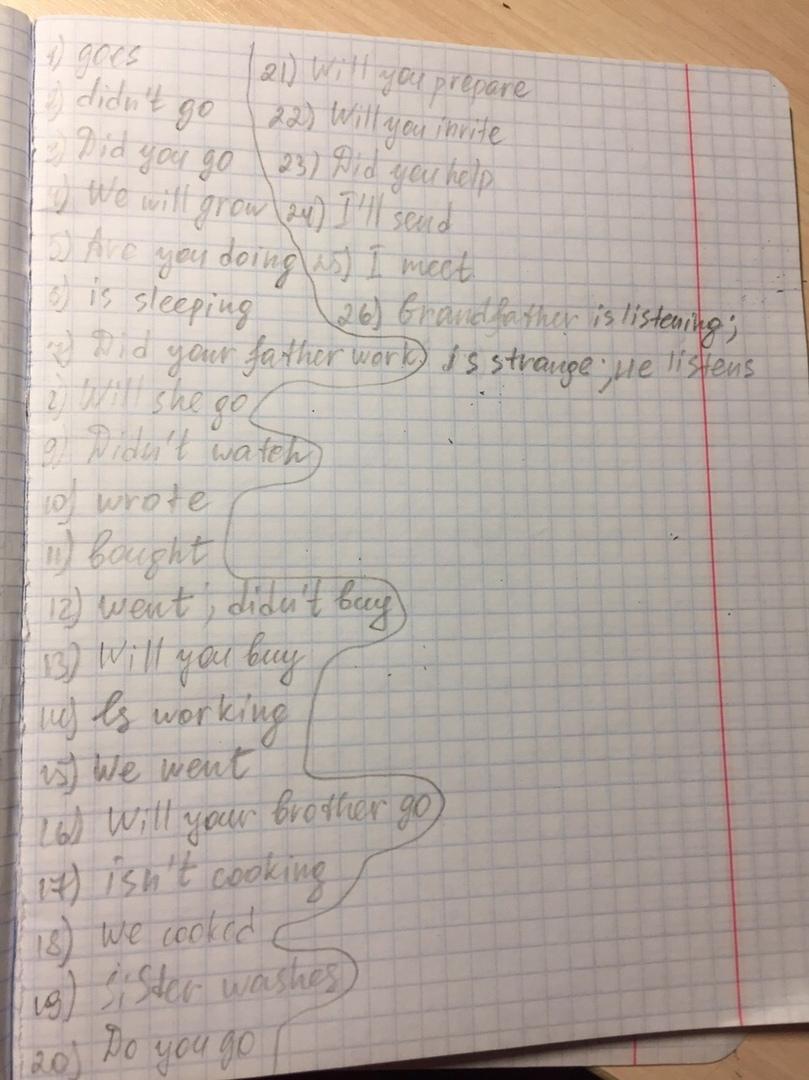 1) goes
2) didn't go
3) Did you go
4) We will grow
5) Are you doing
6) is sleeping
7) Did your father work
8) Will she go
9) Didn't watch
10) wrote
11) bought
12) went; didn't buy
13) Will you buy
14) Is working
15) We went
16) Will your brother go
17) isn't cooking
18) We cooked
19) Sister washes
20) Do you go
21) Will you prepare
22) Will you invite
23) Did you help
24) I'll send
25) I meet
26) Grandfather is listening;
is strange; He listens